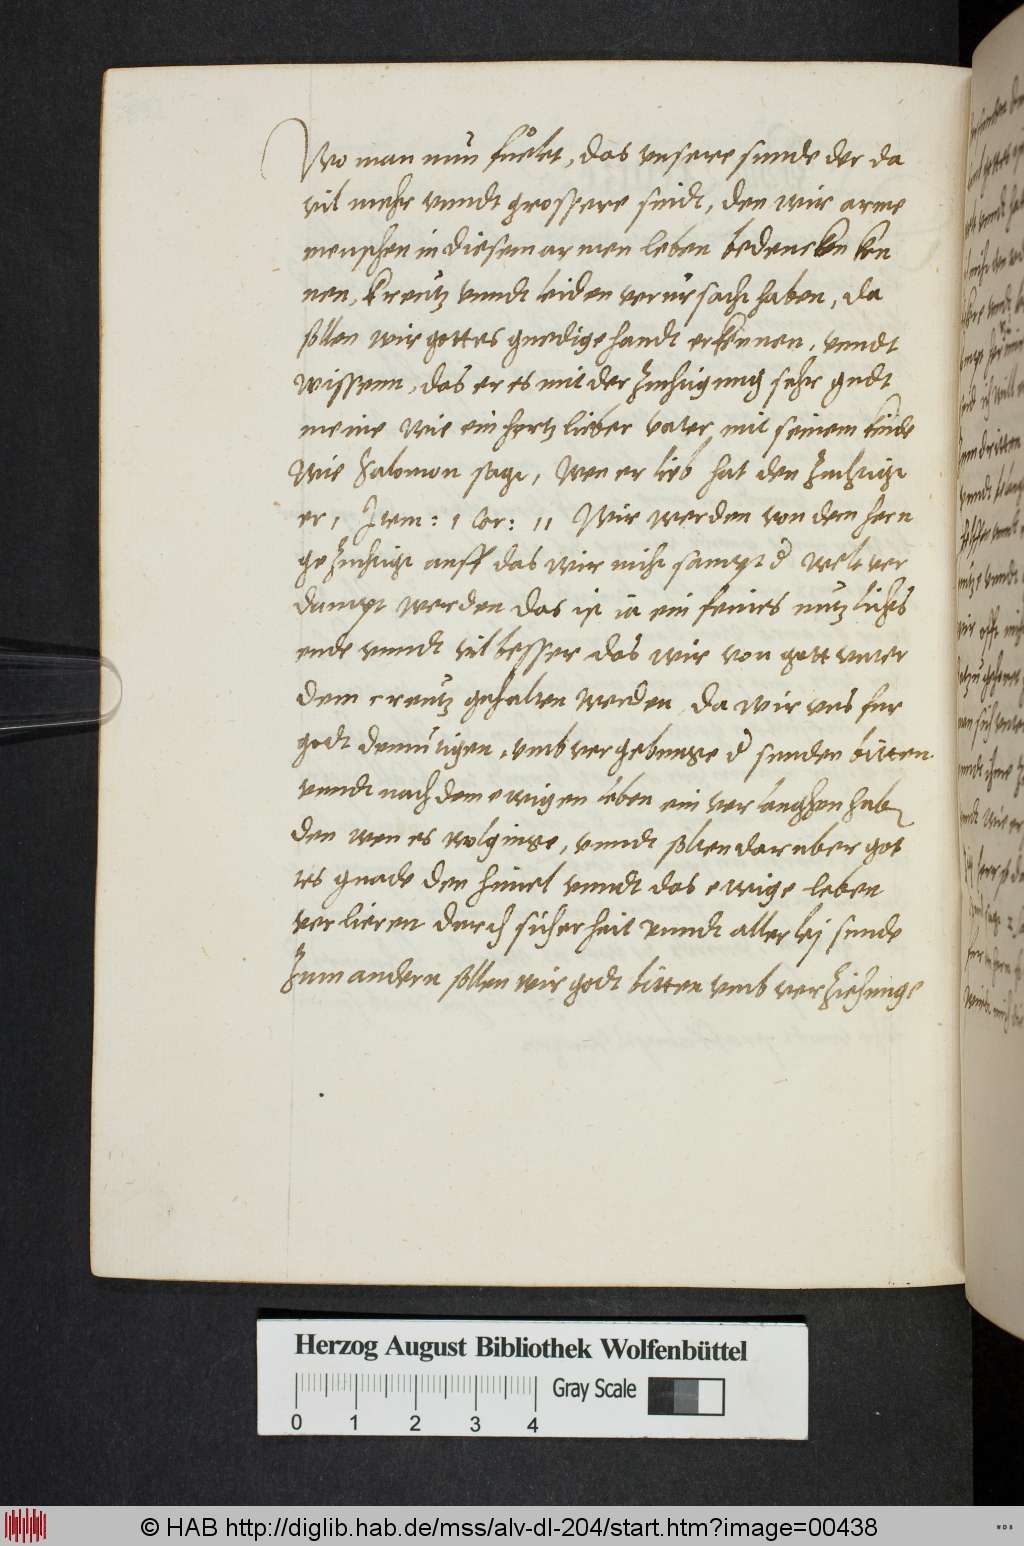 Wo man nun fuelet, das unsere sunde der da
vil mehr unndt grossere sindt, den wir arme
menschen in diesem armen leben bedencken ken
nen, kreutz unndt leiden verursacht haben, da
sollen wir gottes gnedige handt erkennen, unndt
wissenn, das er es mit der zuchtigung sehr gudt
meine wie ein hertzlieber vater mit seinem kinde
Wie Salomon sagt, Wen er lieb hat den zuchtigt
er, Item: 1 Cor: 11 Wir werden von dem hern
gezuchtigt auff das wir nicht sampt d welt ver
dampt werden das ist ia ein feines nutzlichs
ende unndt vil besser das wir von gott unter
dem creutz gehalten werden, da wir uns fur
godt demutigen, umb vergebunge d sunden bitten
unndt nach dem ewigen leben ein verlanghen hab
den wen es wolginge, unndt solten daruber got
tes gnade den himel unndt das ewige leben
verlieren durch sicherheit unndt allerlej sunde
Zum andern sollen wir godt bitten umb verziehunge
Herzog August Bibliothek Wolfenbüttel
0 1 2 3 4 Gray Scale
© HAB http://diglib.hab.de/mss/alv-dl-204/start.htm?image=00438